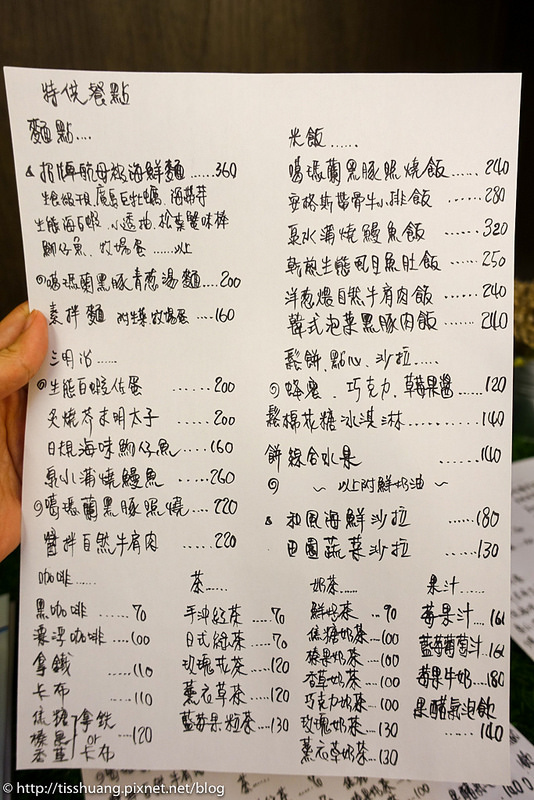 特供餐點
麵點....
招牌航母級海鮮麵......360
廣島巨牡蠣、海帶芽
生態海白蝦、小透抽、松葉蟹味棒
魩仔魚、牧場蛋......以上
噶瑪蘭黑豚青蔥湯麵....200
素拌麵 附生菜牧場蛋....160
三明治......
生態白蝦佐蛋......200
炙燒芥末明太子......200
日根海味魩仔魚....160
泉水蒲燒鰻魚.....260
噶瑪蘭黑豚照燒....220
醬拌自然牛肩肉.....220
米飯......
噶瑪蘭黑豚照燒飯......240
安格斯帶骨牛小排飯......280
泉水蒲燒鰻魚飯......320
乾煎生態虱目魚肚飯......250
洋蔥煨自然牛肩肉飯......240
韓式泡菜黑豚肉飯......240
鬆餅、點心、沙拉.....
蜂蜜、巧克力、草莓果醬....120
棉花糖冰淇淋..........140
綜合水果..........140
鬆
餅
~ 以上附鮮奶油 ~
和風海鮮沙拉......180
田園蔬菜沙拉......130
咖啡......
黑咖啡......70
咖啡....100
拿鐵.....110
卡布.....110
焦糖
榛果
香草
拿鐵
or
卡布
...120
茶....
手沖紅茶....70
日式綠茶....70
玫瑰花茶....120
薰衣草茶....120
藍莓果粒茶...130
奶茶......
鮮奶茶...90
焦糖奶茶...100
榛果奶茶....100
香草奶茶...100
巧克力奶茶...100
玫瑰奶茶...130
薰衣草奶茶...130
果汁......
莓果汁....160
藍莓葡萄汁..160
莓果牛奶...180
果醋氣泡飲
......140
© http://tisshuang.pixnet.net/blog